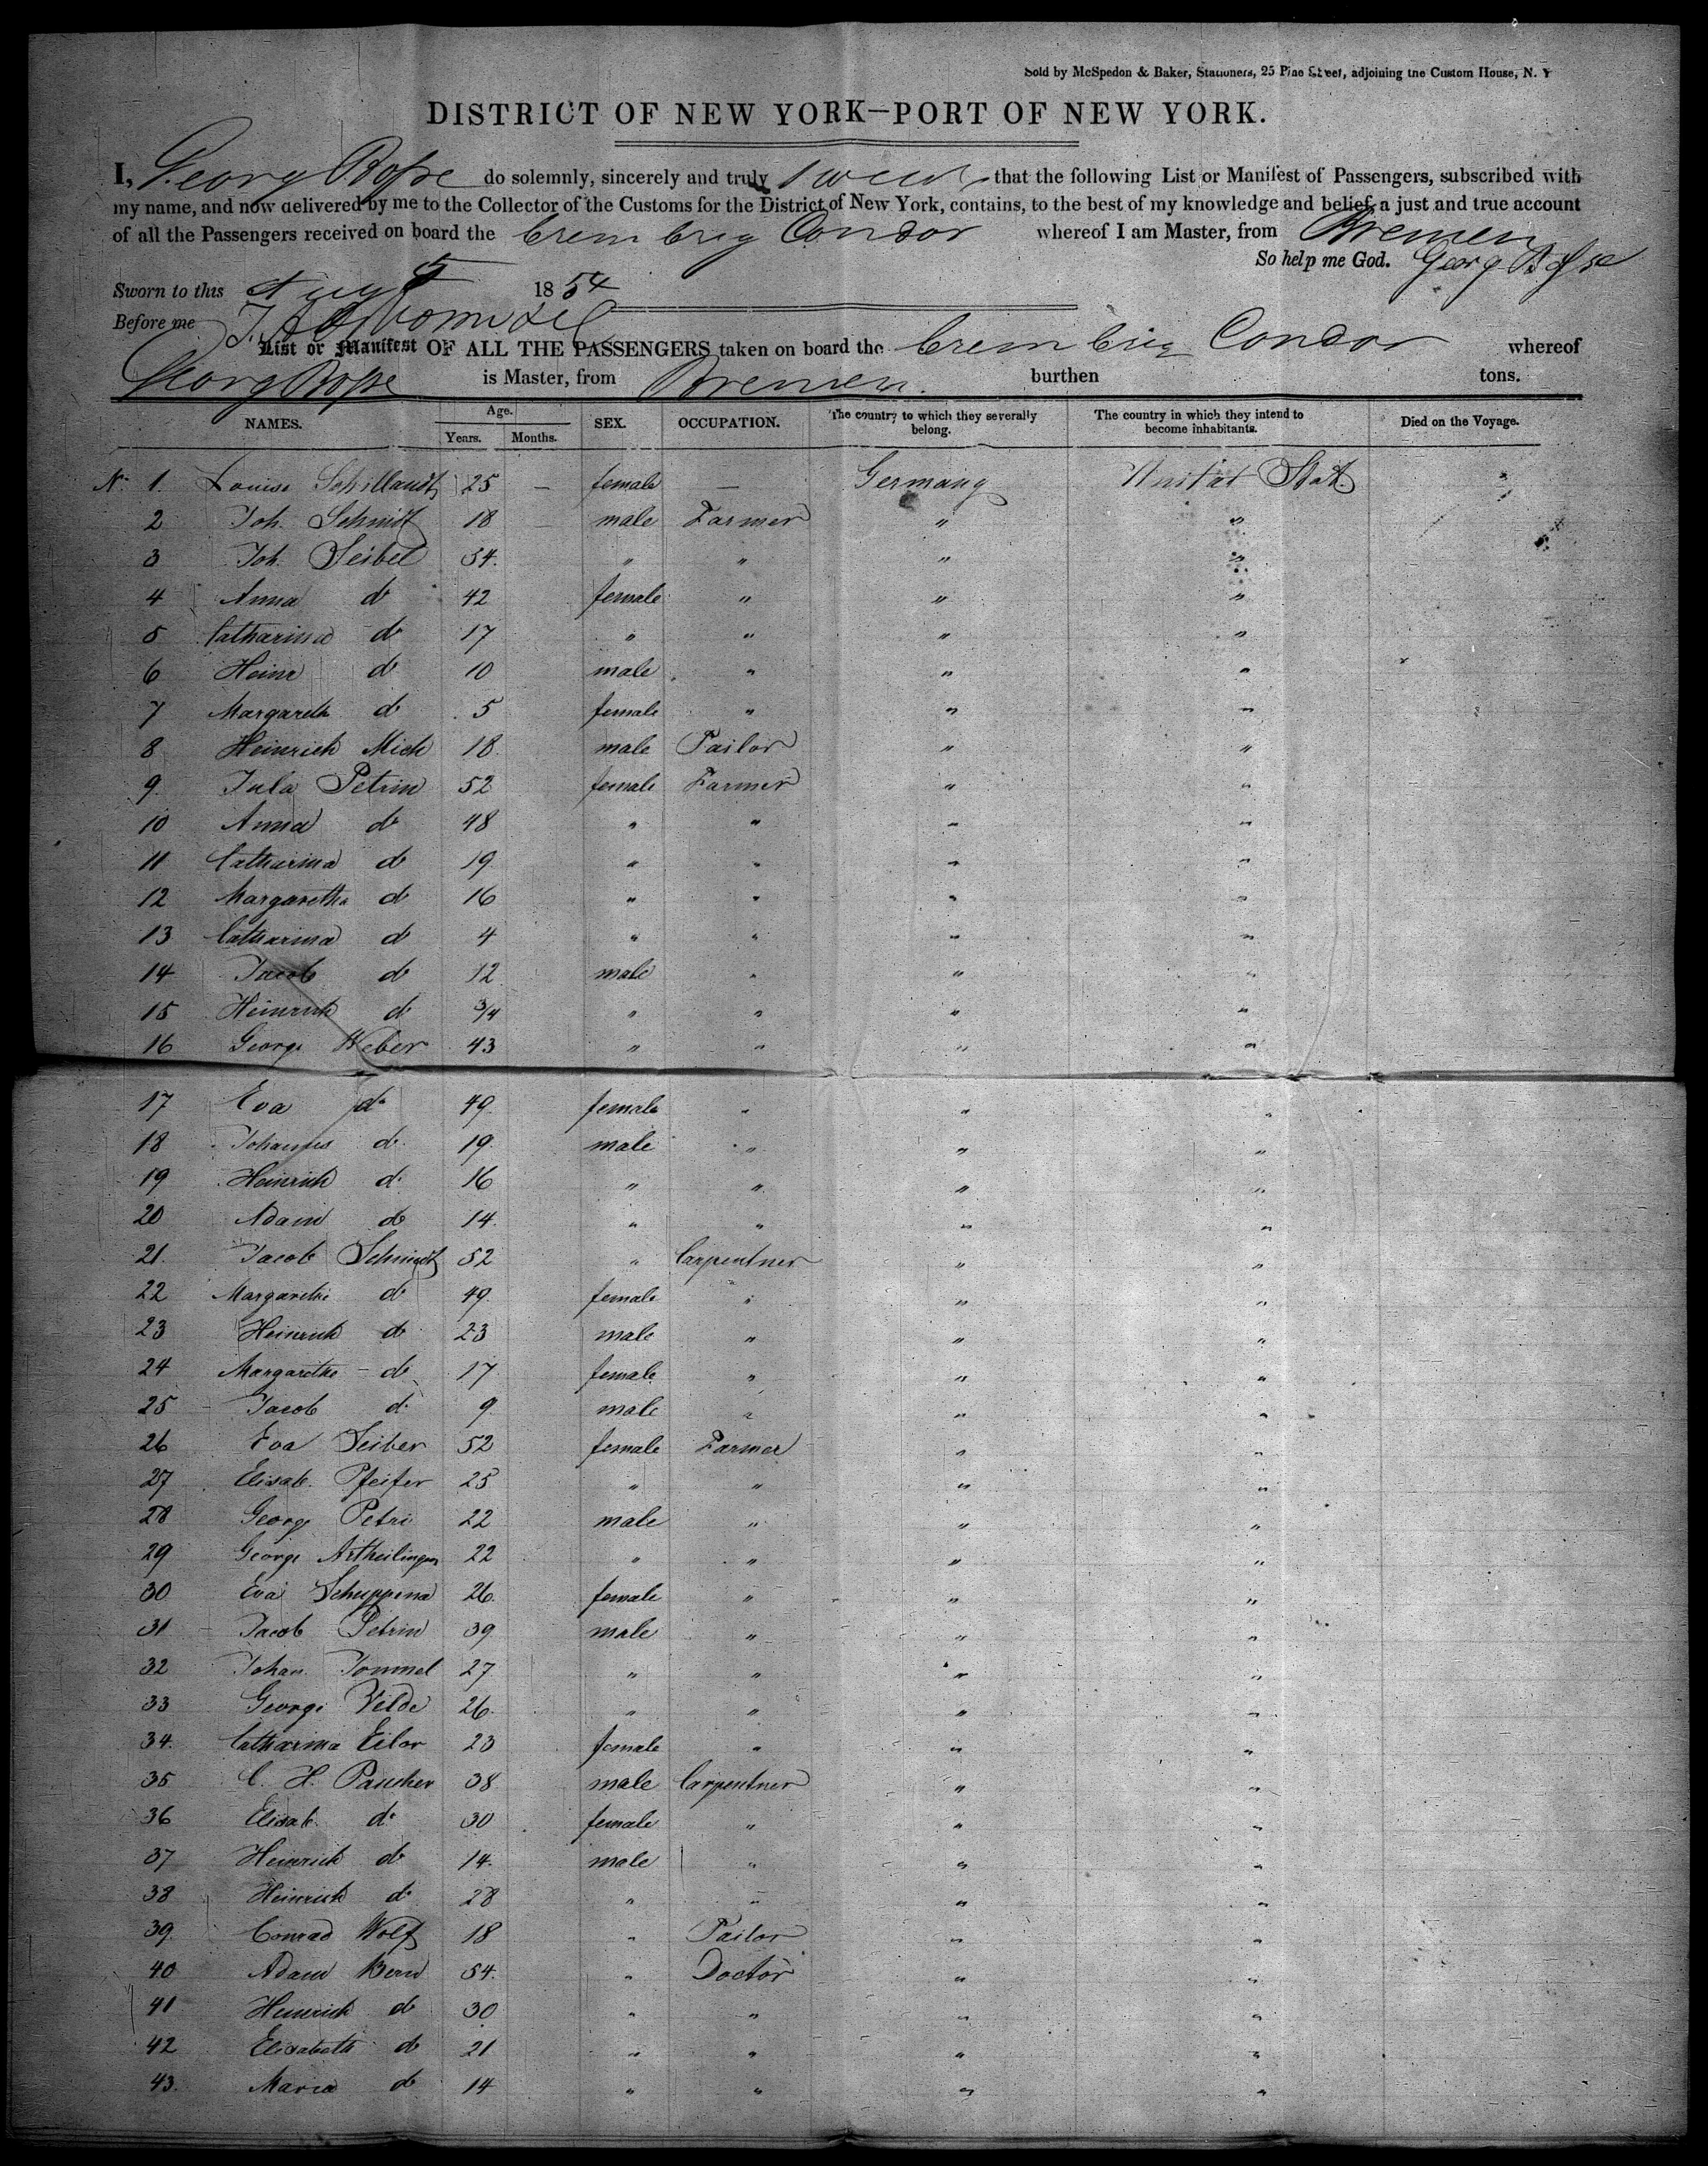 Sold by McSpedon & Baker, Stationers, 25 Pine Street, adjoining the Custom House, N. Y
DISTRICT OF NEW YORK—PORT OF NEW YORK.
I, Georg do solemnly, sincerely and truly swear that the following List or Manifest of Passengers, subscribed with
my name, and now delivered by me to the Collector of the Customs for the District of New York, contains, to the best of my knowledge and belief, a just and true account
of all the Passengers received on board the brem brig Condor whereof I am Master, from Bremen
So help me God. Georg
Sworn to this Aug 5 1854
Before me
List or Manifest OF ALL THE PASSENGERS taken on board the brem brig Condor whereof
Georg is Master, from Bremen. burthen tons.
NAMES. Age. Years. Months. SEX. OCCUPATION. The country to which they severally belong. The country in which they intend to become inhabitants. Died on the Voyage.
No 1. Louise 25 — female — Germany Unitat Stat.
2 Joh. Schmidt 18 — male Farmer " "
3 Joh. Seibel 54. " " " "
4 Anna do 42 female " " "
5 Catharina do 17 " " " "
6 Heinr do 10 male " " "
7 Margareth do 5 female " " "
8 Heinrich Mich 18 male Tailor " "
9. Jula Petrin 52 female Farmer " "
10 Anna do 48 " " " "
11 Catharina do 19 " " " "
12 Margaretha do 16 " " " "
13 Catharina do 4 " " " "
14 Jacob do 12 male " " "
15 Heinrich do 3/4 " " " "
16 George Weber 43 " " " "
17 Eva do 49 female " " "
18 Johannes do 19. male " " "
19 Heinrich do 16 " " " "
20 Adam do 14. " " " "
21. Jacob Schmidt 52 " Carpentner " "
22 Margarethe do 49. female " " "
23 Heinrich do 23 male " " "
24 Margarethe do 17 female " " "
25 Jacob do 9 male " " "
26 Eva Seiber 52 female Farmer " "
27 Elisab. Pfeifer 25 " " " "
28 George Petri 22 male " " "
29 George 22 " " " "
30 Eva 26. female " " "
31 Jacob Petrin 39 male " " "
32 Johan. 27 " " " "
33 George Velde 26. " " " "
34. Catharina Eilor 23 female " " "
35 C. H. 38 male Carpentner " "
36 Elisab. do 30 female " " "
37 Heinrich do 14. male " " "
38 Heinrich do 28 " " " "
39. Conrad Wolf 18 " Tailor " "
40 Adam 54. " Doctor " "
41 Heinrich do 30 " " " "
42 Elisabeth do 21 " " " "
43. Maria do 14 " " " "